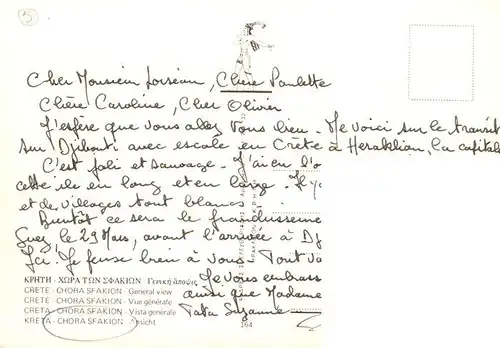 5
Cher Monsieur Loiseau, Chère Paulette
Chère Caroline, Cher Olivier
J'espère que vous allez tous bien. Me voici sur le transit
sur Djibouti avec escale en Crète à Heraklion, la capitale
C'est joli et sauvage. J'ai eu l'o
cette île en long et en large. Il y
et de villages tout blancs.
Bientôt ce sera le grandissime
Suez le 29 Mars, avant l'arrivée à Dj
Ici. Je pense bien à vous. Tout va
Je vous embrass
ainsi que Madame
Tata Suzanne
ΚΡΗΤΗ - ΧΩΡΑ ΤΩΝ ΣΦΑΚΙΩΝ Γενική άποψις
CRETE - CHORA SFAKION - General view
CRETE - CHORA SFAKION - Vue générale
CRETA - CHORA SFAKION - Vista generale
KRETA - CHORA SFAKION - Ansicht
164